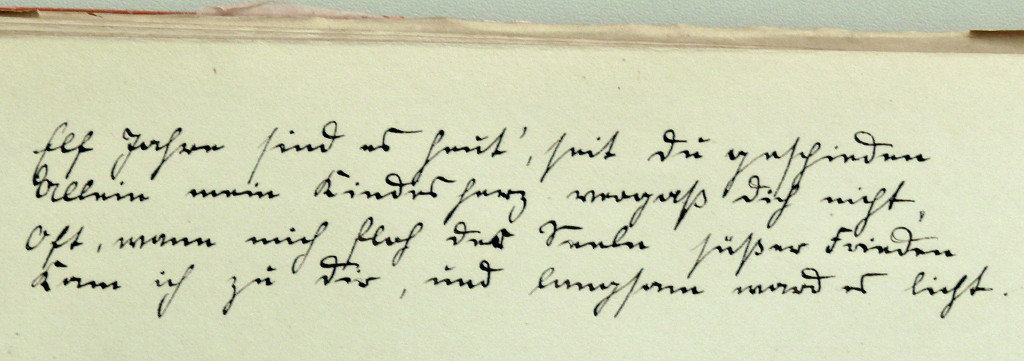 Elf Jahre sind es heut', seit du geschieden
Allein mein Kindesherz vergaß dich nicht,
Oft, wann mich floh der Seele süßer Frieden
Kam ich zu dir, und langsam ward es licht.